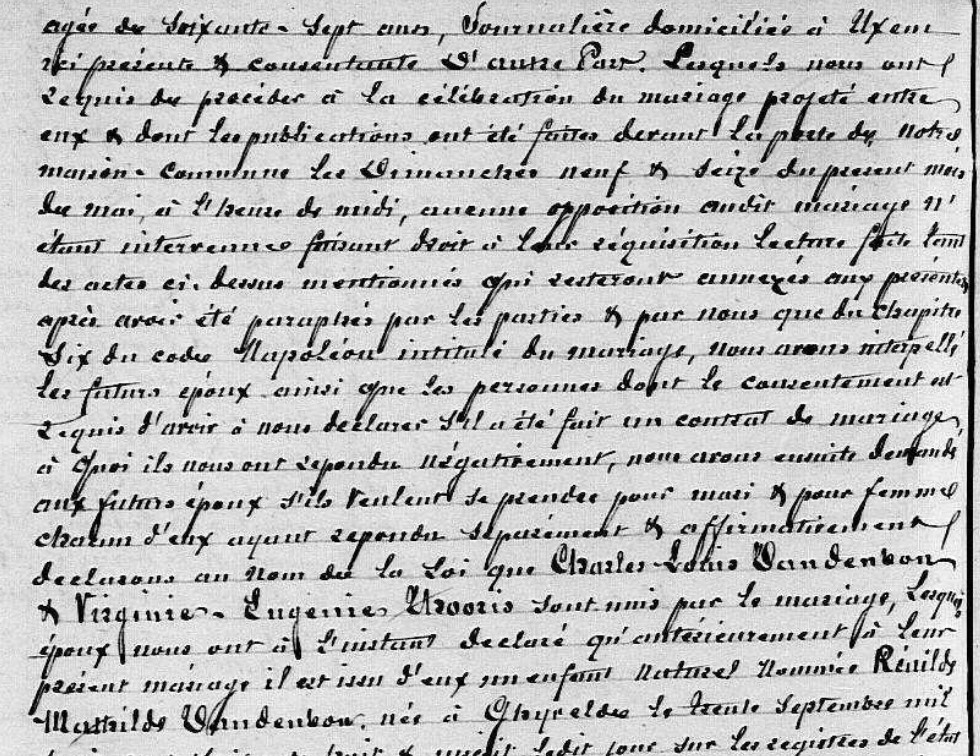 agée de soixante-sept ans, Journalière domiciliée à Uxem
ici présente & consentante D'autre Part. Lesquels nous ont
requis de procéder à la célébration du mariage projeté entre
eux & dont les publications ont été faites devant la porte de notre
maison-commune les Dimanches neuf & seize du présent mois
de mai, à l'heure de midi, aucune opposition audit mariage n'
étant intervenue faisant droit à leur réquisition lecture faite tant
des actes ci-dessus mentionnés qui resteront annexés aux présentes
après avoir été paraphés par les parties & par nous que du chapitre
Six du code Napoléon intitulé du mariage, nous avons interpellé
les futurs époux ainsi que les personnes dont le consentement est
requis d'avoir à nous déclarer s'il a été fait un contrat de mariage
à quoi ils nous ont repondu négativement, nous avons ensuite demandé
aux futurs époux s'ils veulent se prendre pour mari & pour femme
chacun d'eux ayant repondu séparément & affirmativement
declarons au nom de la Loi que Charles Louis Vandenbon
& Virginie-Eugénie Thooris sont unis par le mariage, Lesquels
époux nous ont à l'instant declaré qu'antérieurement à leur
présent mariage il est issu d'eux un enfant naturel nommée Rénilde
Mathilde Vandenbon, née à Ghyvelde le trente septembre mil
huit & inscrit ledit jour sur les registres de l'état